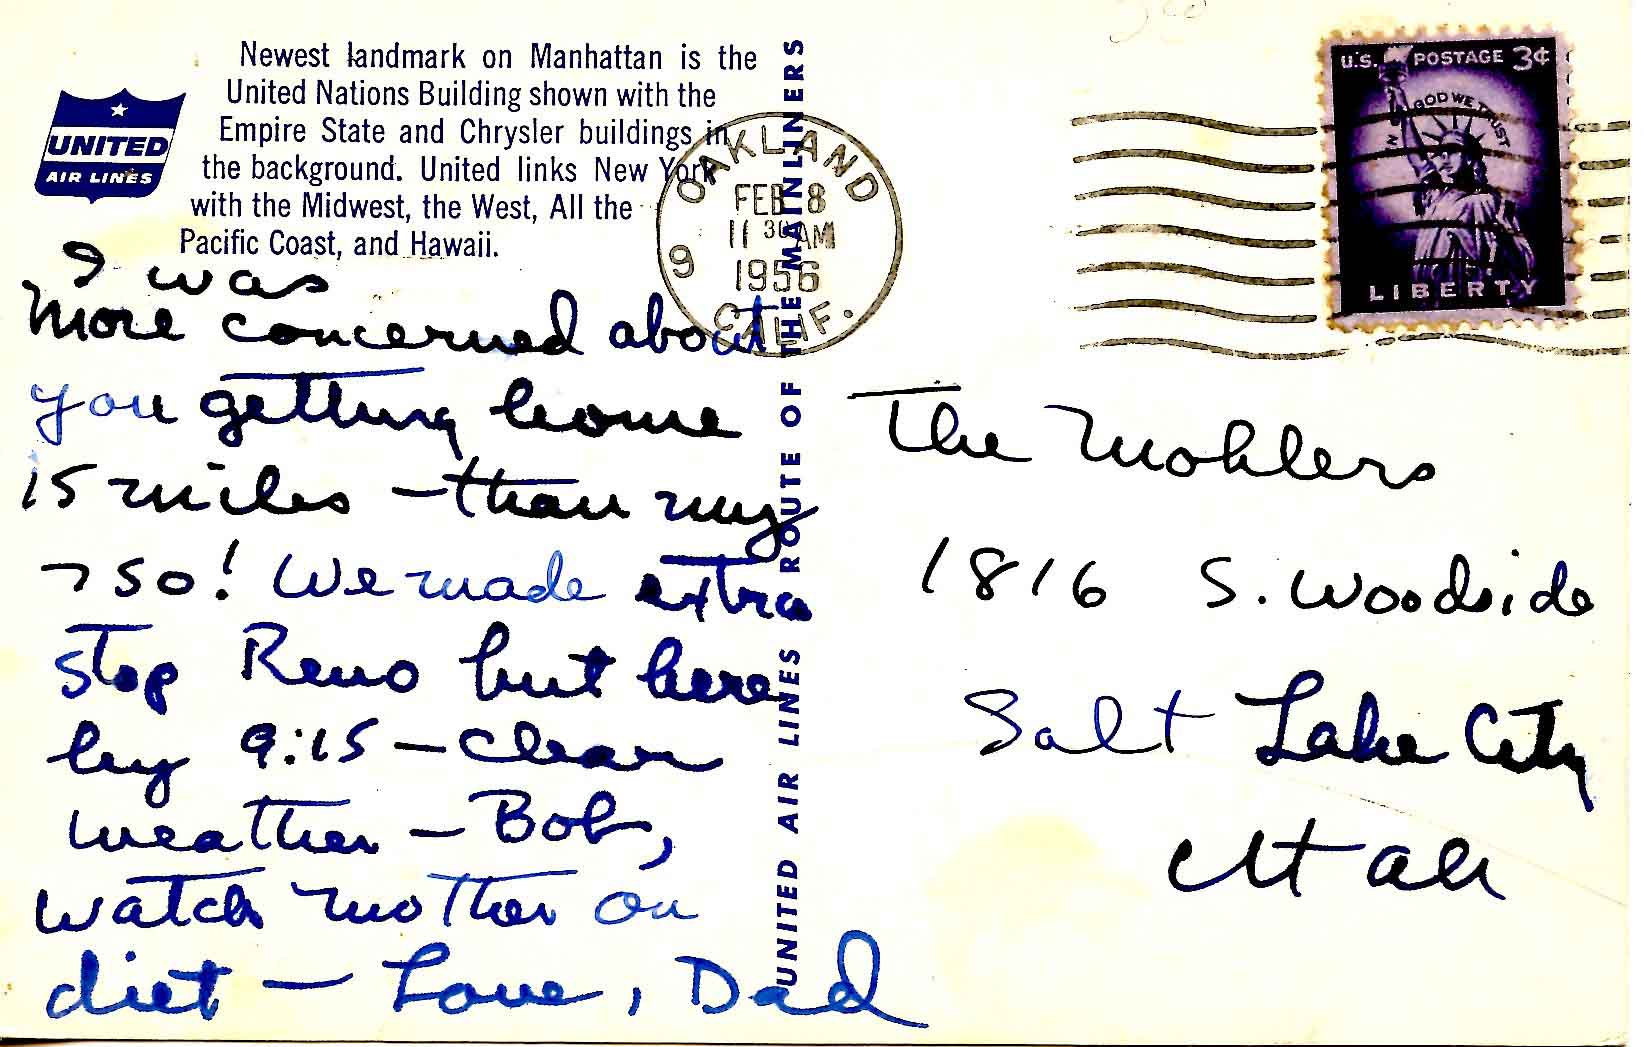 Newest landmark on Manhattan is the
United Nations Building shown with the
Empire State and Chrysler buildings in
the background. United links New York
with the Midwest, the West, All the
Pacific Coast, and Hawaii.
UNITED
AIR LINES
I was
more concerned about
you getting home
15 miles — than my
750! We made extra
stop Reno but here
by 9:15 — Clear
weather — Bob,
watch mother on
diet — Love, Dad
UNITED AIR LINES ROUTE OF THE MAINLINERS
OAKLAND
FEB 8
11 30 AM
1956
CALIF.
9
U.S. POSTAGE 3¢
IN GOD WE TRUST
LIBERTY
The Mohlers
1816 S. Woodside
Salt Lake City
Utah